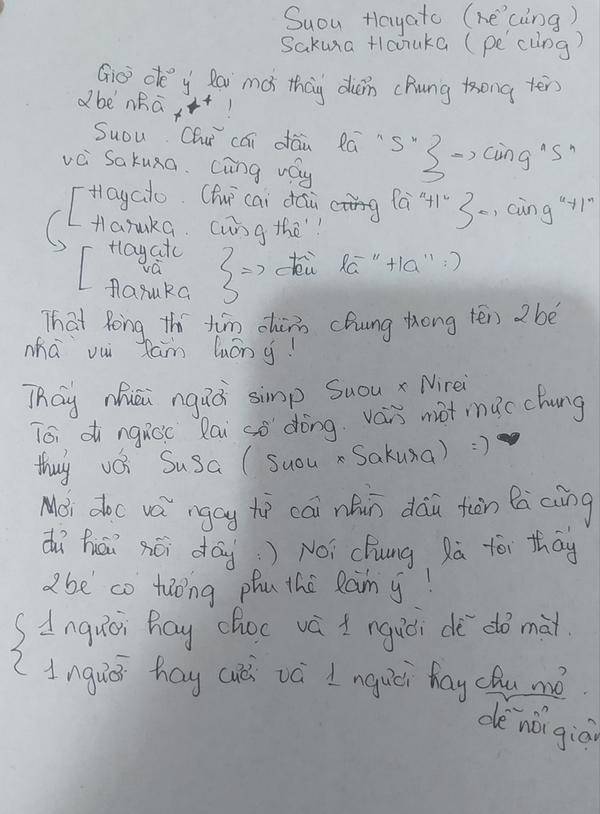 Suou Hayato (rể cưng)
Sakura Haruka (pé cưng)
Giờ để ý lại mới thấy điểm chung trong tên
2bé nhà !
Suou. Chữ cái đầu là "S" } => cùng "S"
và Sakura. cũng vậy
[ Hayato. Chữ cái đầu cũng là "H" } => cùng "H"
Haruka. cũng thế!
[ Hayato
và } => đều là "Ha" :)
Haruka
Thật lòng thì tìm điểm chung trong tên 2bé
nhà vui lắm luôn ý!
Thấy nhiều người simp Suou × Nirei
Tôi đi ngược lại số đông. Vẫn một mực chung
thuỷ với SuSa ( Suou × Sakura) :) ♥
Mới đọc và ngay từ cái nhìn đầu tiên là cũng
đủ hiểu rồi đấy :) Nói chung là tôi thấy
2bé có tướng phu thê lắm ý!
{ 1 người hay chọc và 1 người dễ đỏ mặt.
1 người hay cười và 1 người hay chu mỏ.
dễ nổi giận